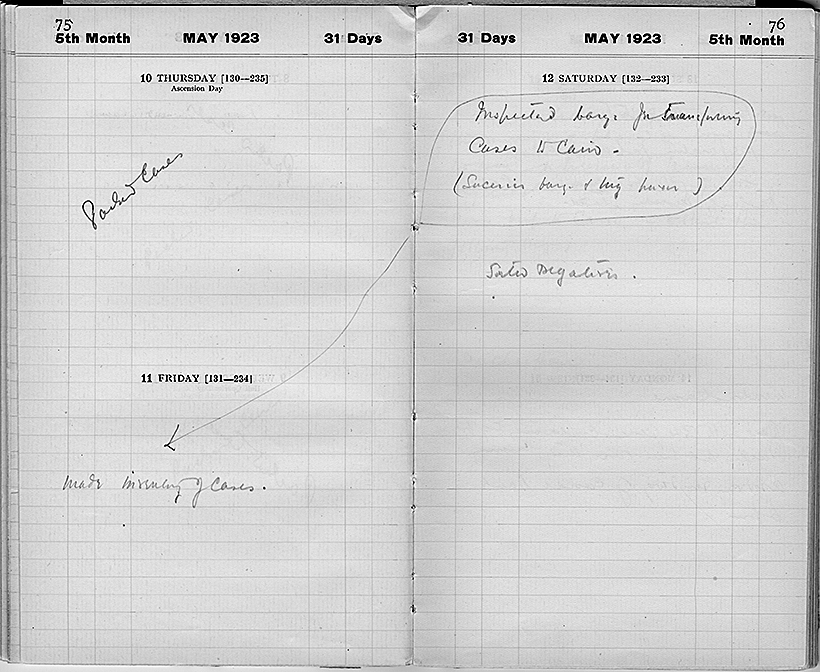 75
5th Month MAY 1923 31 Days
10 THURSDAY [130—235]
Ascension Day
Packed Cases
11 FRIDAY [131—234]
Made inventory of Cases.
76
31 Days MAY 1923 5th Month
12 SATURDAY [132—233]
Inspected barge for transferring
Cases to Cairo -
( barge & big )
Sorted Negatives.